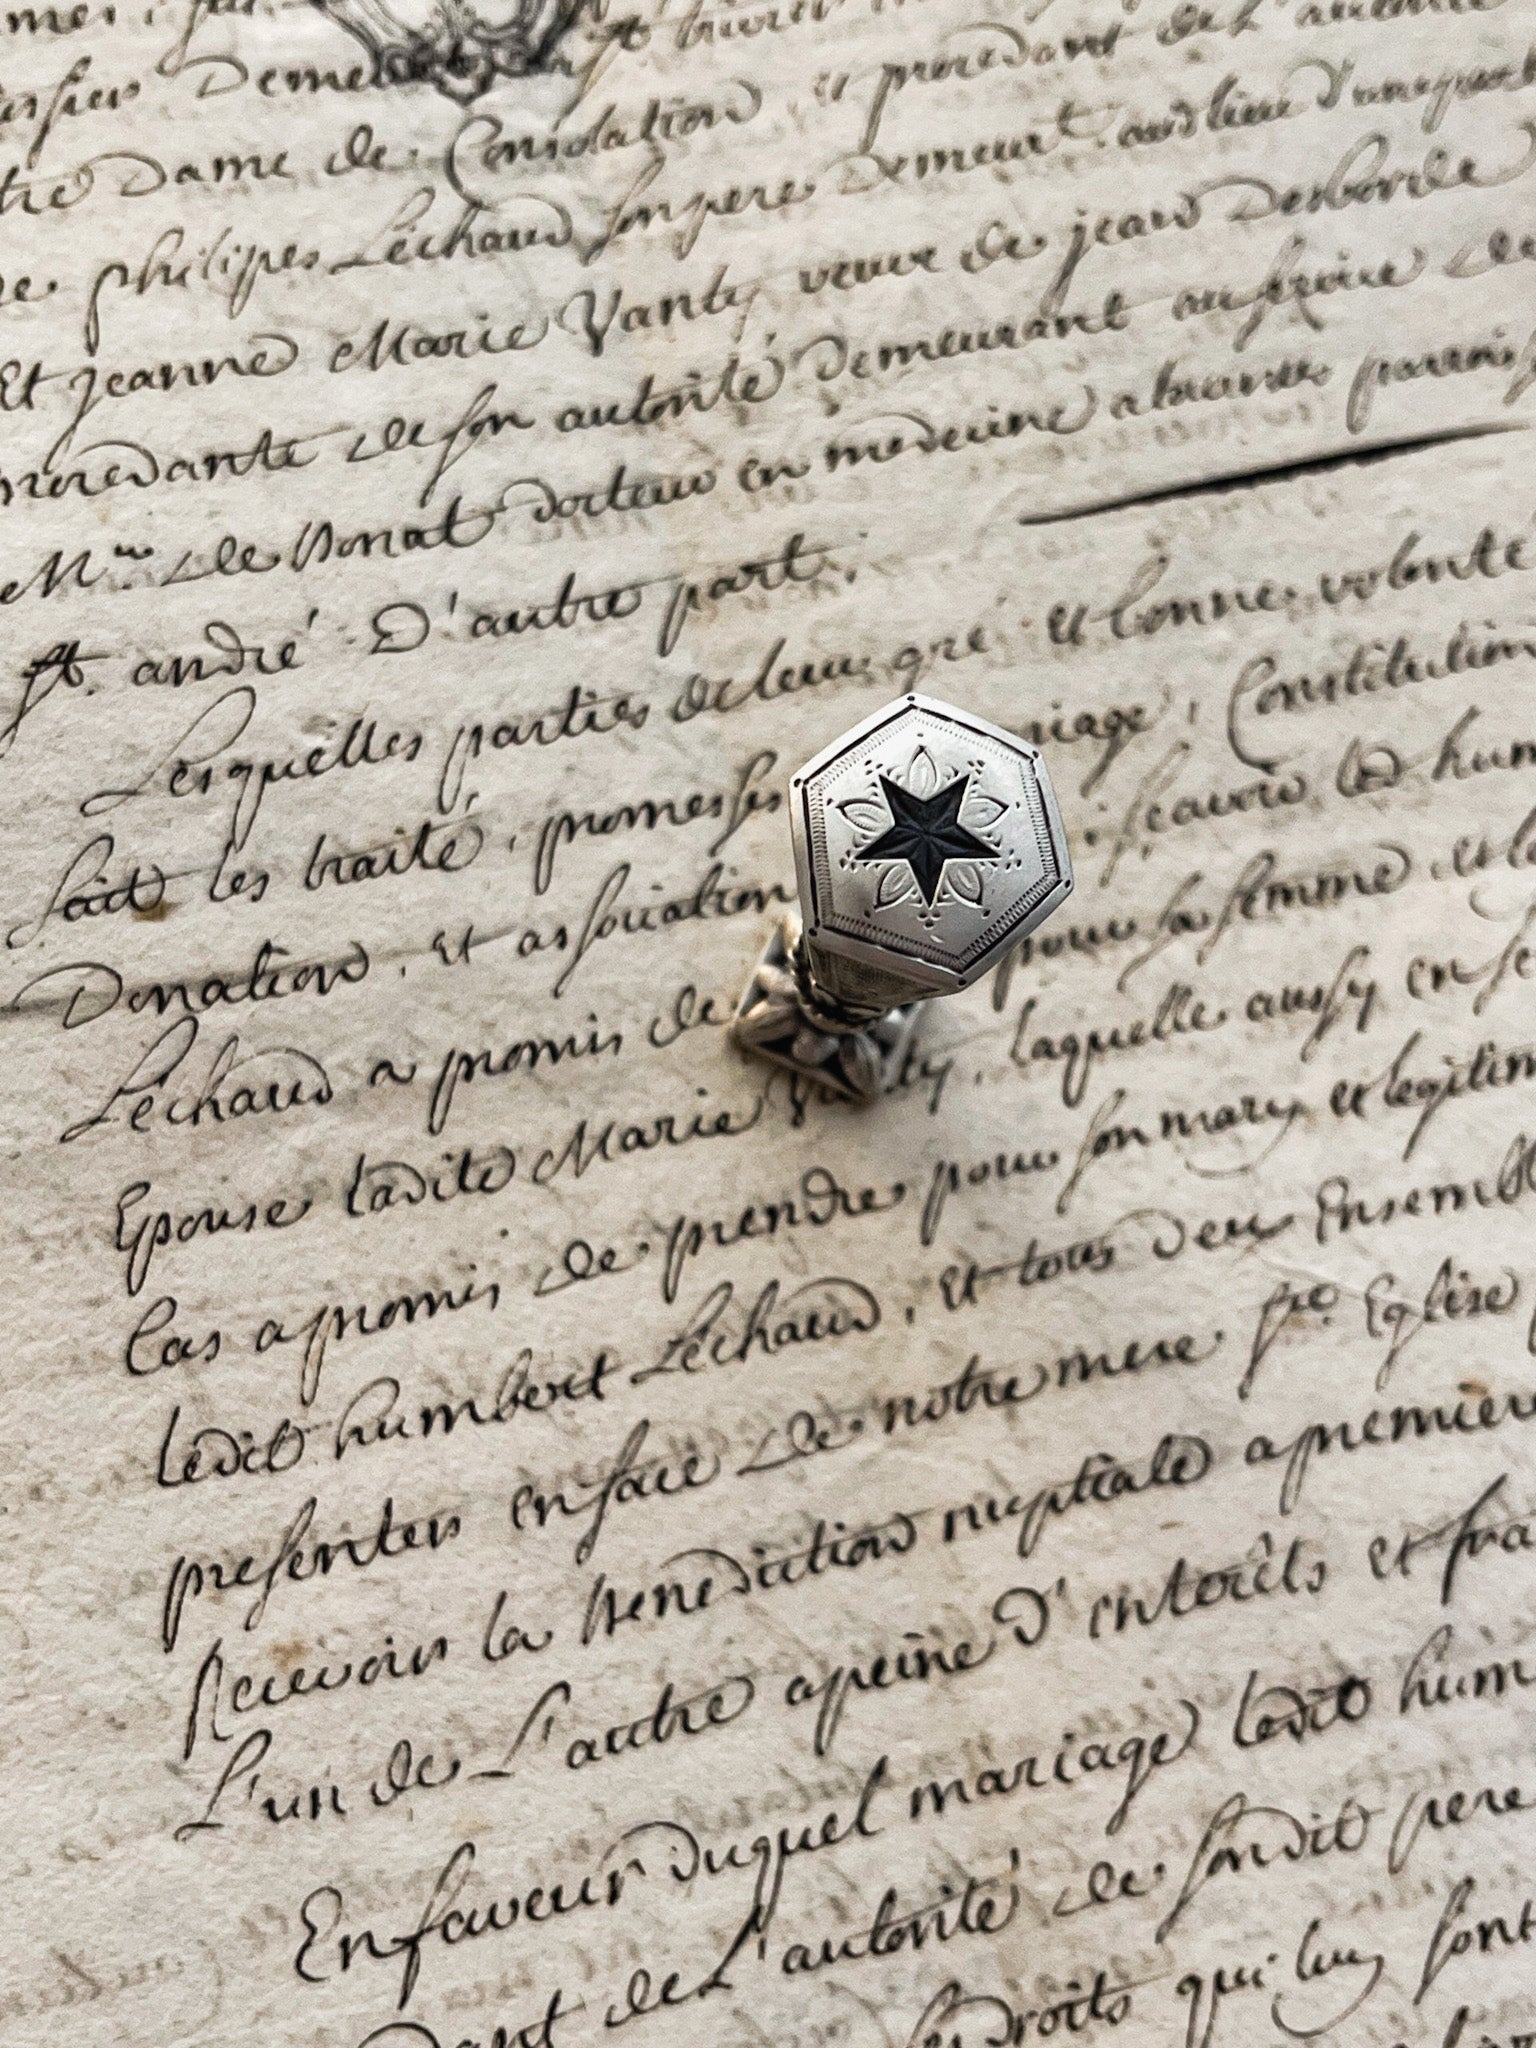 Demeu
tre Dame de Consolation, et procedant de L'autorité
philipes Lechaud son pere Demeurt. audlieu
Et jeanne Marie Vanty veuve de jean Desborde
procedante de son autorité Demeurant au service de
Mre. de bonat docteur en medecine parois
st. andré D'autre part.
Lesquelles parties de leur gré et bonne volonté
fait les traité, promesses riage, Constitution
Donation, et association sçavoir led hum
Lechaud a promis de pour sa femme et le
Epouse ladite Marie Vanty, laquelle aussy en se
cas a promis de prendre pour son mary et legitim
ledit humbert Lechaud, et tous deux Ensembl
presenter en face de notre mere ste. Eglise p
Recevoir la benediction nuptiale a premiere
L'un de L'autre a peine D'interêts et fra
En faveur duquel mariage ledit hum
dant de L'autorité de sondit pere
droits qui luy sont